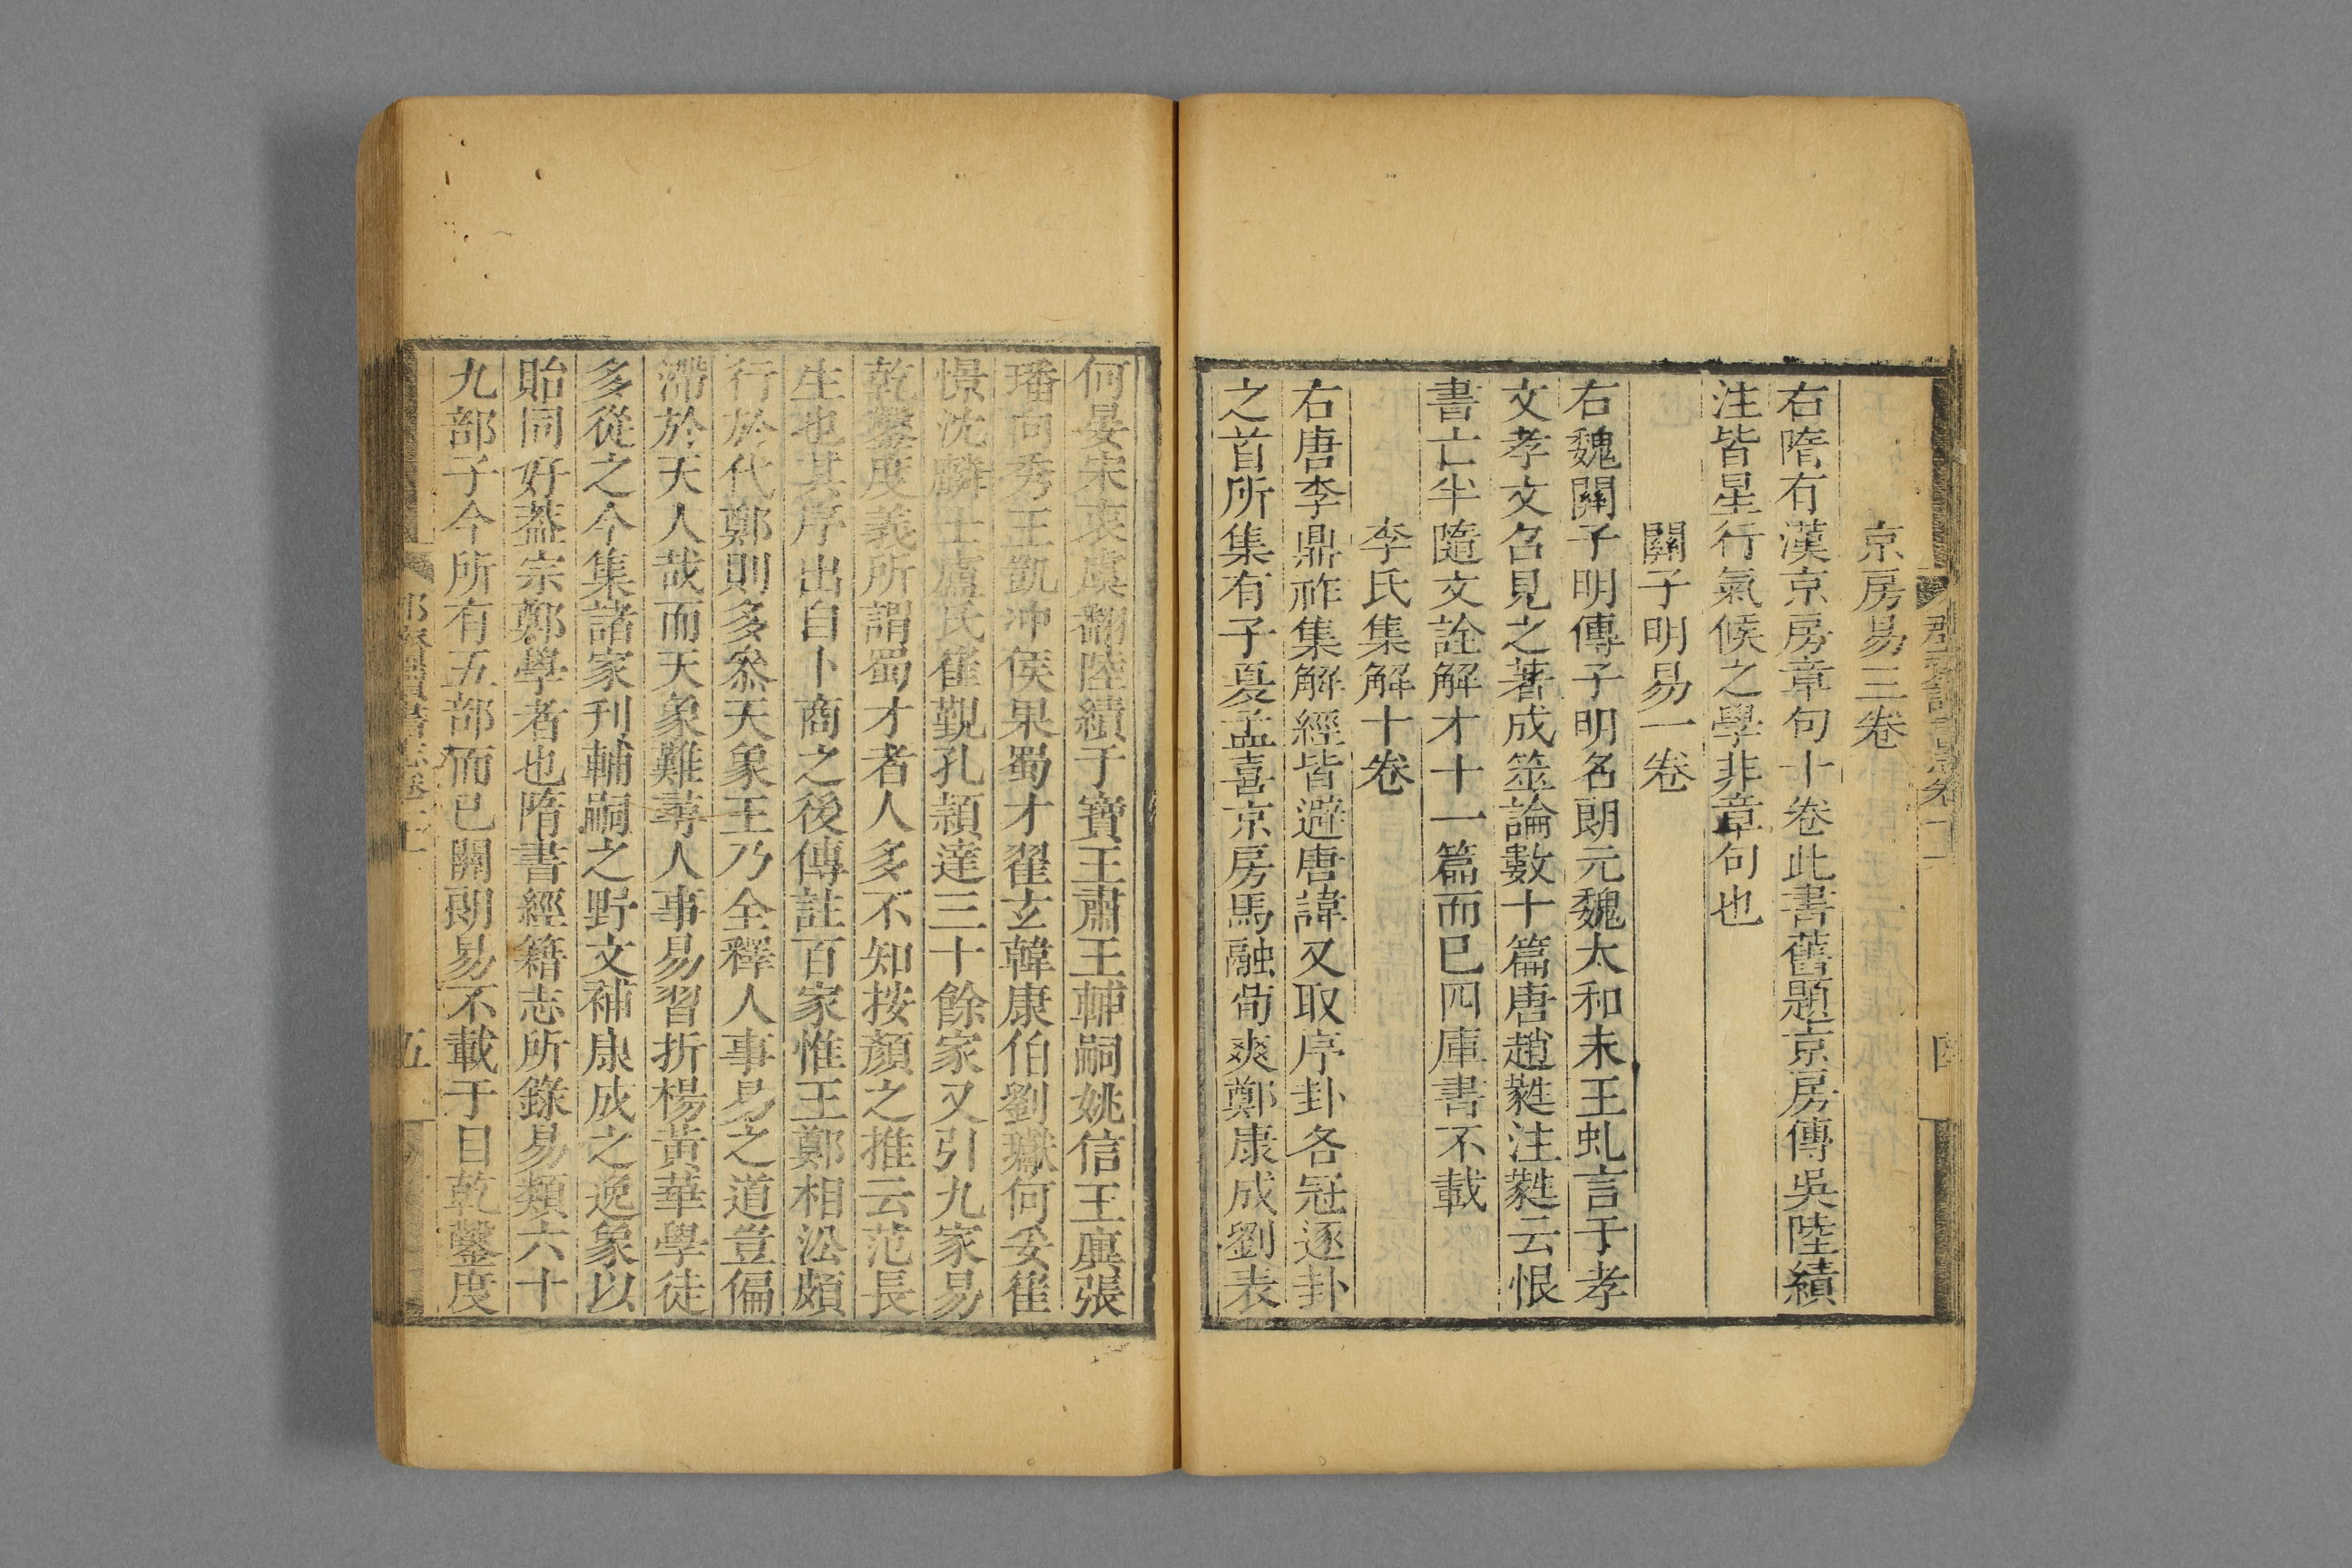 京房易三卷
右隋有漢京房章句十卷此書舊題京房傳吳陸績
注皆星行氣候之學非章句也
關子明易一卷
右魏關子明傳子明名朗元魏太和末王虬言于孝
文孝文召見之著成筮論數十篇唐趙蕤注蕤云恨
書亡半隨文詮解才十一篇而已四庫書不載
李氏集解十卷
右唐李鼎祚集解經皆避唐諱又取序卦各冠逐卦
之首所集有子夏孟喜京房馬融荀爽鄭康成劉表
何晏宋衷虞翻陸績于寶王肅王輔嗣姚信王廙張
璠向秀王凱冲侯果蜀才翟玄韓康伯劉瓛何妥崔
憬沈麟士盧氏崔覲孔穎達三十餘家又引九家易
乾鑿度義所謂蜀才者人多不知按顏之推云范長
生也其序出自卜商之後傳註百家惟王鄭相沿頗
行於代鄭則多叅天象王乃全釋人事易之道豈偏
滯於天人哉而天象難尋人事易習折楊黃華學徒
多從之今集諸家刋輔嗣之野文補康成之逸象以
貽同好葢宗鄭學者也隋書經籍志所錄易類六十
九部子今所有五部而已關朗易不載于目乾鑿度
五